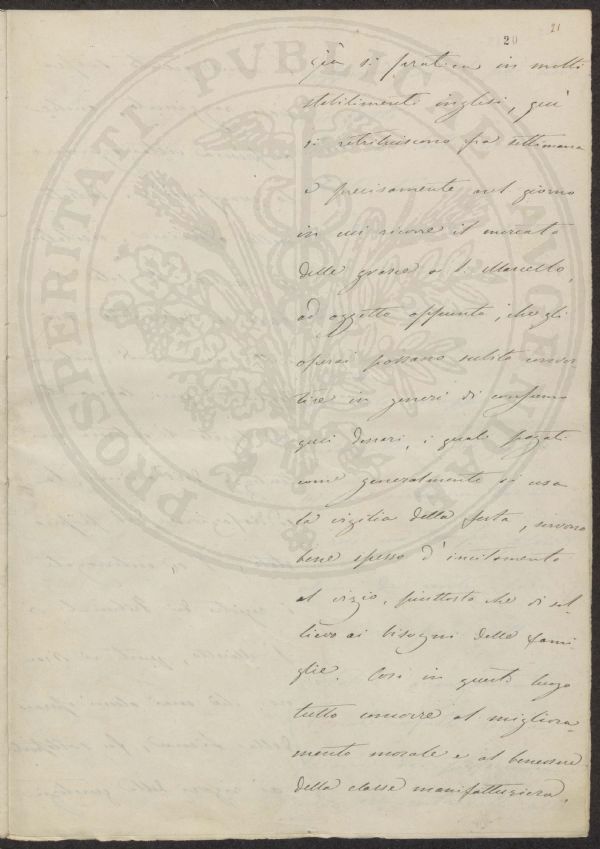 20
21
già si pratica in molti
stabilimenti inglesi, quì
si retribuiscono fra settimana
e precisamente nel giorno
in cui ricorre il mercato
delle grasce a S. Marcello,
ad oggetto appunto, che gli
operai possano subito conver
tire in generi di consumo
quei denari, i quali pagati
come generalmente si usa
la vigilia della festa, servono
bene spesso d'incitamento
al vizio, piuttosto che di sol-
lievo ai bisogni delle fami
glie. Così in questi luogo
tutto concorre al migliora-
mento morale e al benessere
della classe manifatturiera.
PROSPERITATI PVBLICAE AVGENDAE